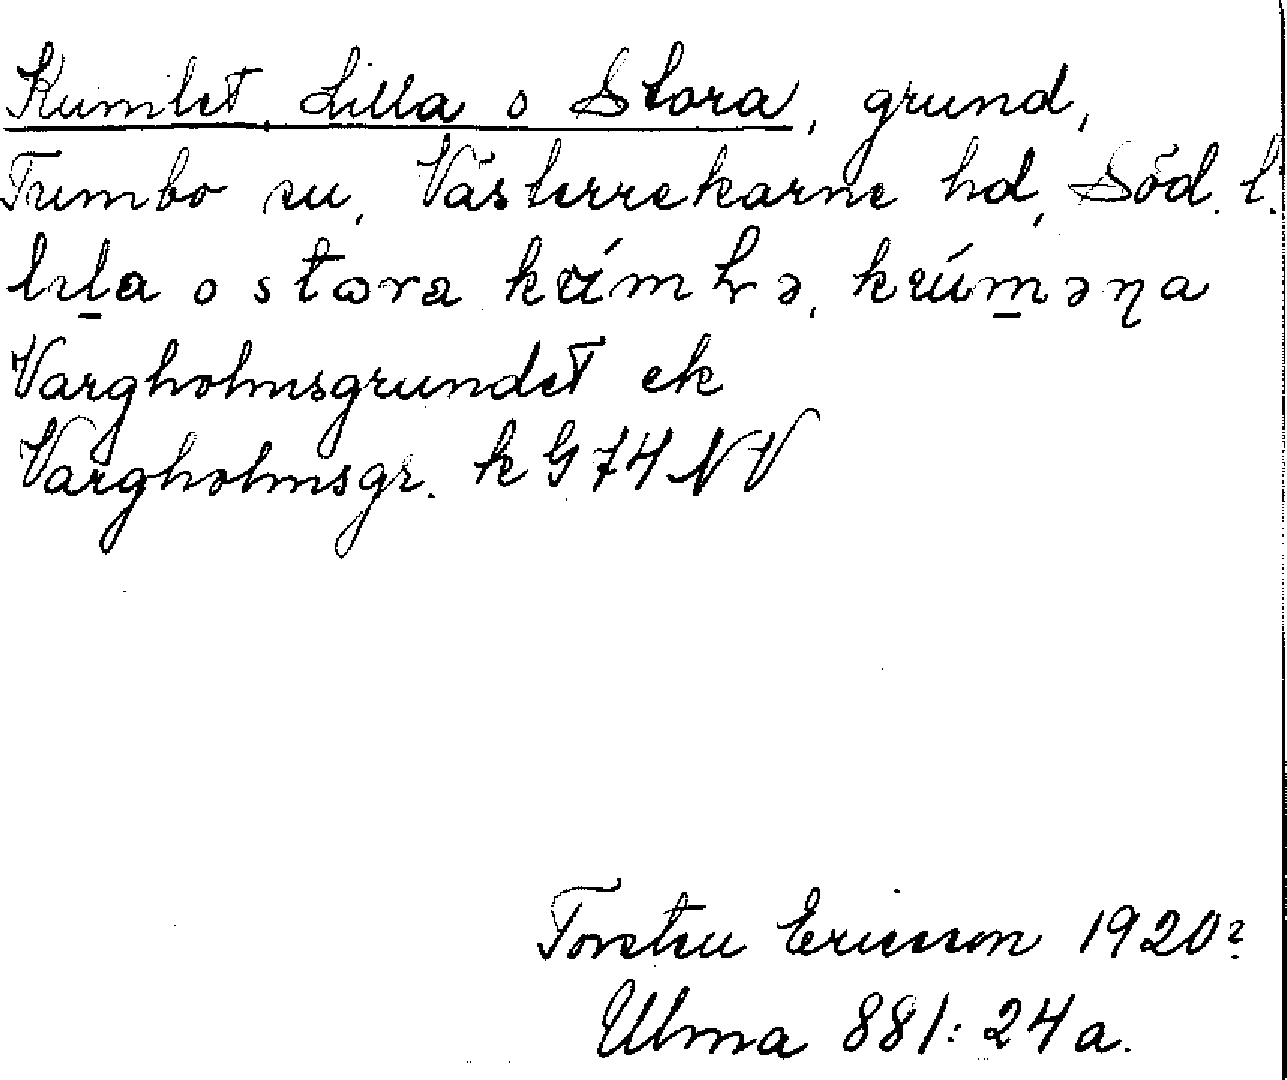 Kumlet, Lilla o Stora, grund,
Tumbo sn, Västerrekarne hd, Söd. l.
lɪl̲a o stɷra
Vargholmsgrundet ek
Vargholmsgr. k G 74 NV
Torsten Ericsson 1920?
Ulma 881: 24 a.